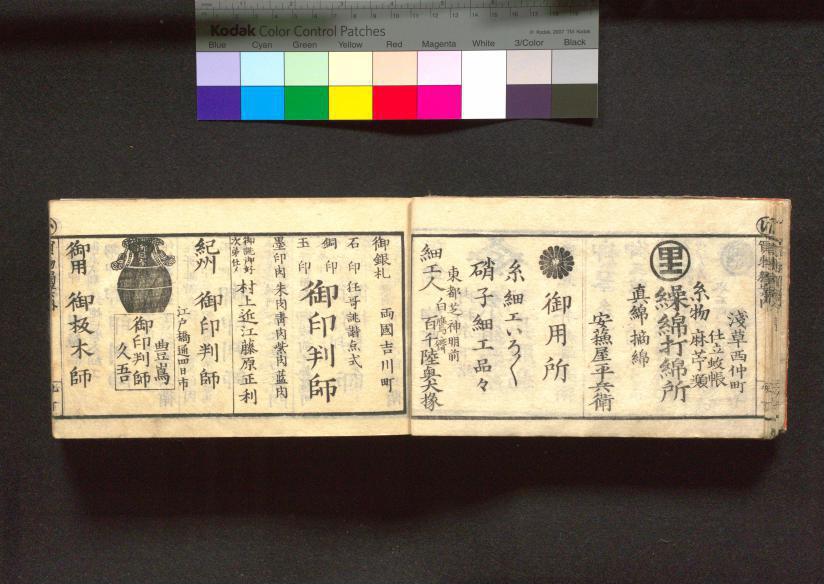 Kodak Color Control Patches
© Kodak, 2007 TM: Kodak
Blue Cyan Green Yellow Red Magenta White 3/Color Black
淺草西仲町
仕立蚊帳
糸物 麻苧類
繰綿打綿所
里
真綿 摘綿
安藤屋平兵衛
御用所
糸細工いろ〱
硝子細工品々
東都芝神明前
細工人 白鷹齋 百千陸奥大掾
両國吉川町
御銀札
石印 狂哥誹諧点式
銅印
玉印
御印判師
墨印肉 朱肉 青肉 紫肉 藍肉
御誂御好
次第仕ル
村上近江藤原正利
紀州 御印判師
江戸橋通四日市
豊嶌
御印判師
久吾
御用 御板木師